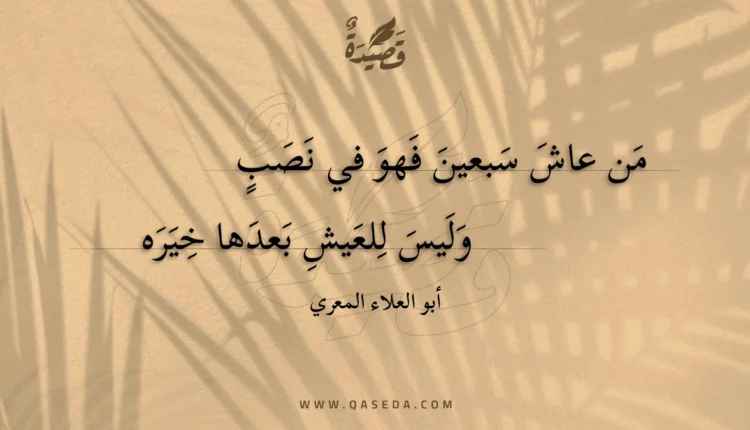 قَصِيْدَةٌ
مَن عاشَ سَبعينَ فَهوَ في نَصَبٍ
وَلَيسَ لِلعَيشِ بَعدَها خِيَرَه
أبو العلاء المعري
WWW.QASEDA.COM